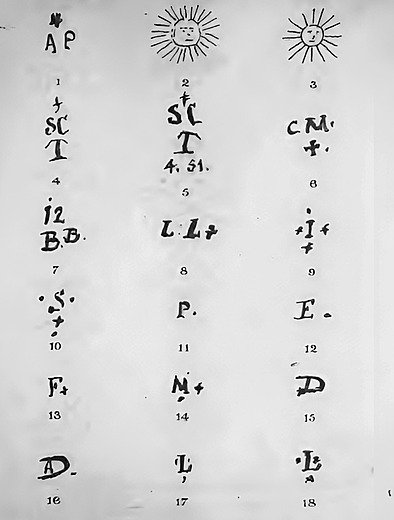 AP
1
2
3
+
SC
T
4
+
SC
T
4. 51.
5
CM.
+.
6
12
B.B.
7
L.L+
8
+I+
+
9
.S.
+
10
P.
11
E.
12
F+
13
M+
14
D
15
D.
16
L
17
L
18